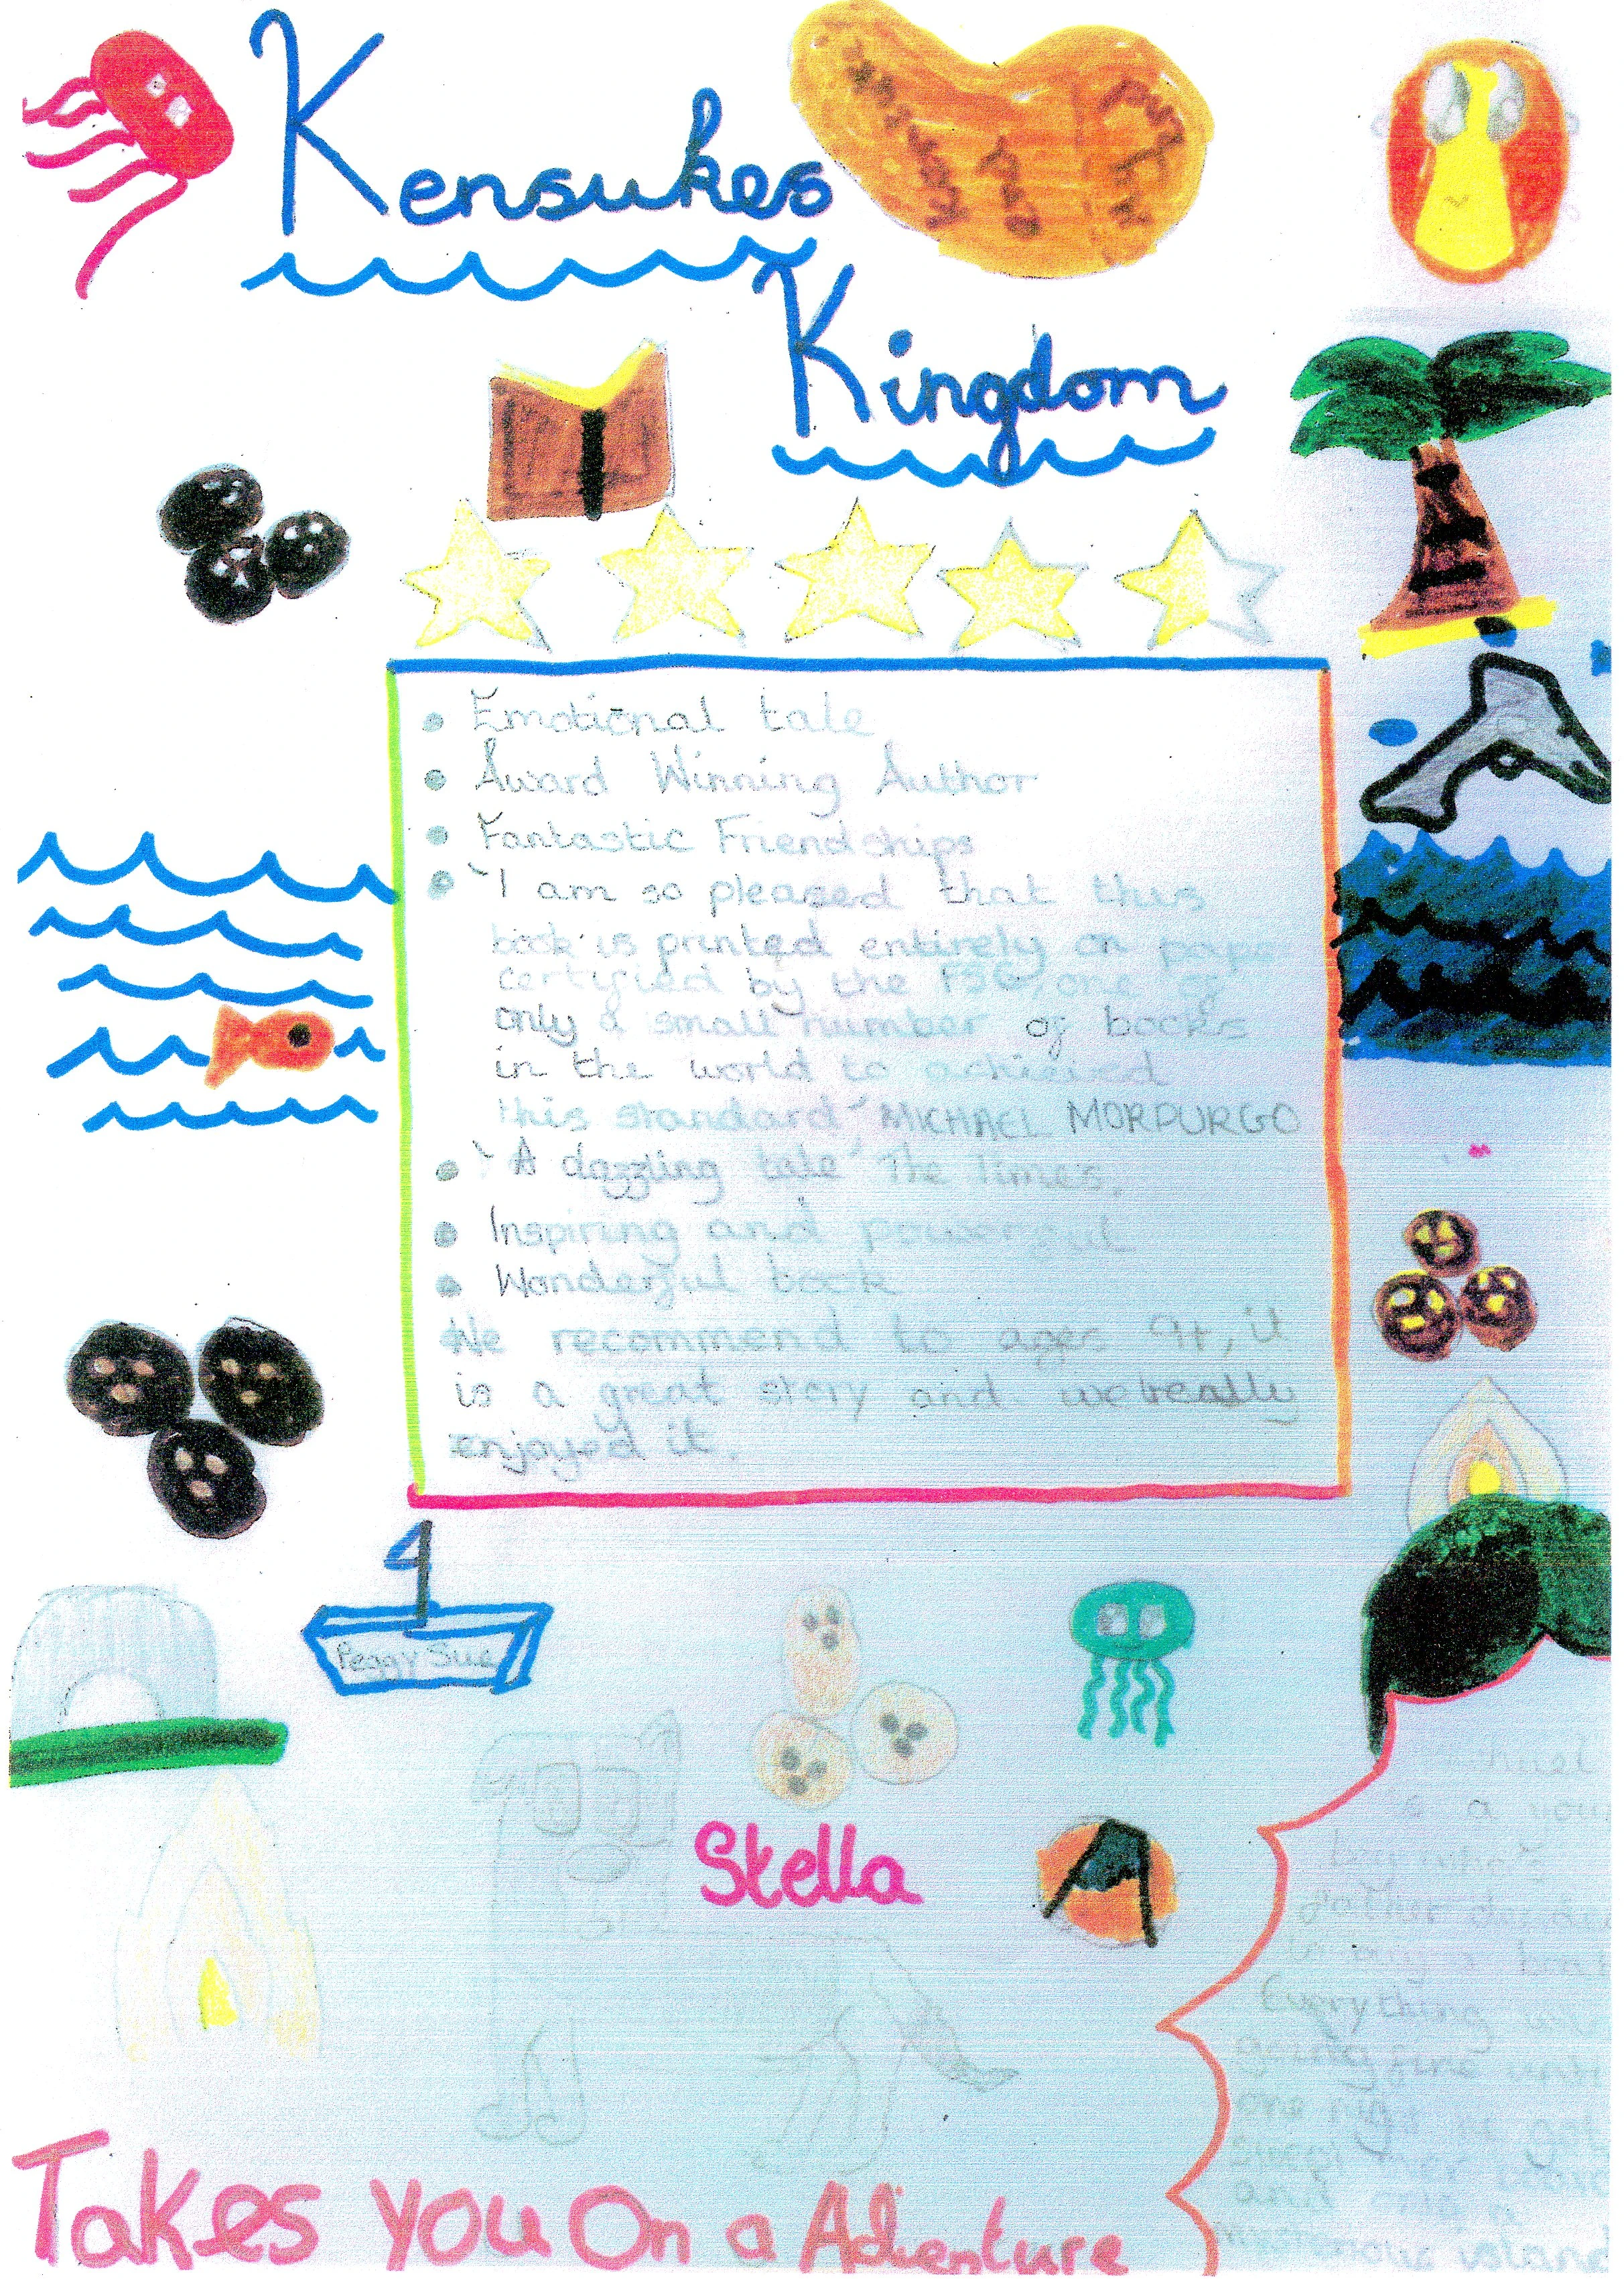 Kensukes
Kingdom
• Emotional tale
• Award Winning Author
• Fantastic Friendships
• 'I am so pleased that this
book is printed entirely on paper
certified by the FSC, one of
only a small number of books
in the world to achieved
this standard' MICHAEL MORPURGO
• 'A dazzling tale' The Times.
• Inspiring and powerful
• Wonderful book
We recommend to ages 9+, it
is a great story and we really
enjoyed it.
Peggy Sue
Stella
is a
boy who
Everything
going fine until
one night
and
Takes you On a Adventure